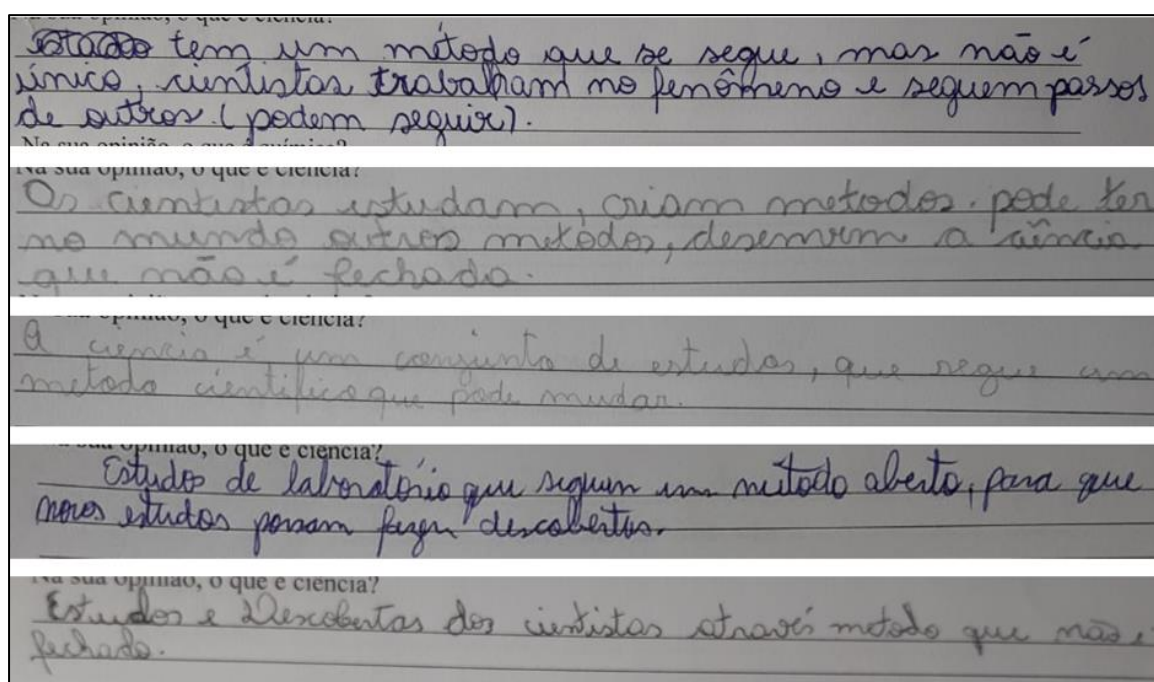 Na sua opinião, o que é ciência?
tem um método que se segue, mas não é
único, cientistas trabalham no fenômeno e seguem passos
de outros (podem seguir).
Na sua opinião, o que é química?
Na sua opinião, o que é ciência?
Os cientistas estudam, criam metodos. pode ter
no mundo outros metodos, desenvem a ciência
que não é fechada.
sua opinião, o que é ciência?
A ciencia é um conjunto de estudos, que segue um
metodo cientifico que pode mudar.
sua opinião, o que é ciência?
Estudos de laboratório que seguem um método aberto, para que
novos estudos possam fazer descobertas.
Na sua opinião, o que é ciência?
Estudos e Descobertas dos cientistas através metodo que não é
fechado.